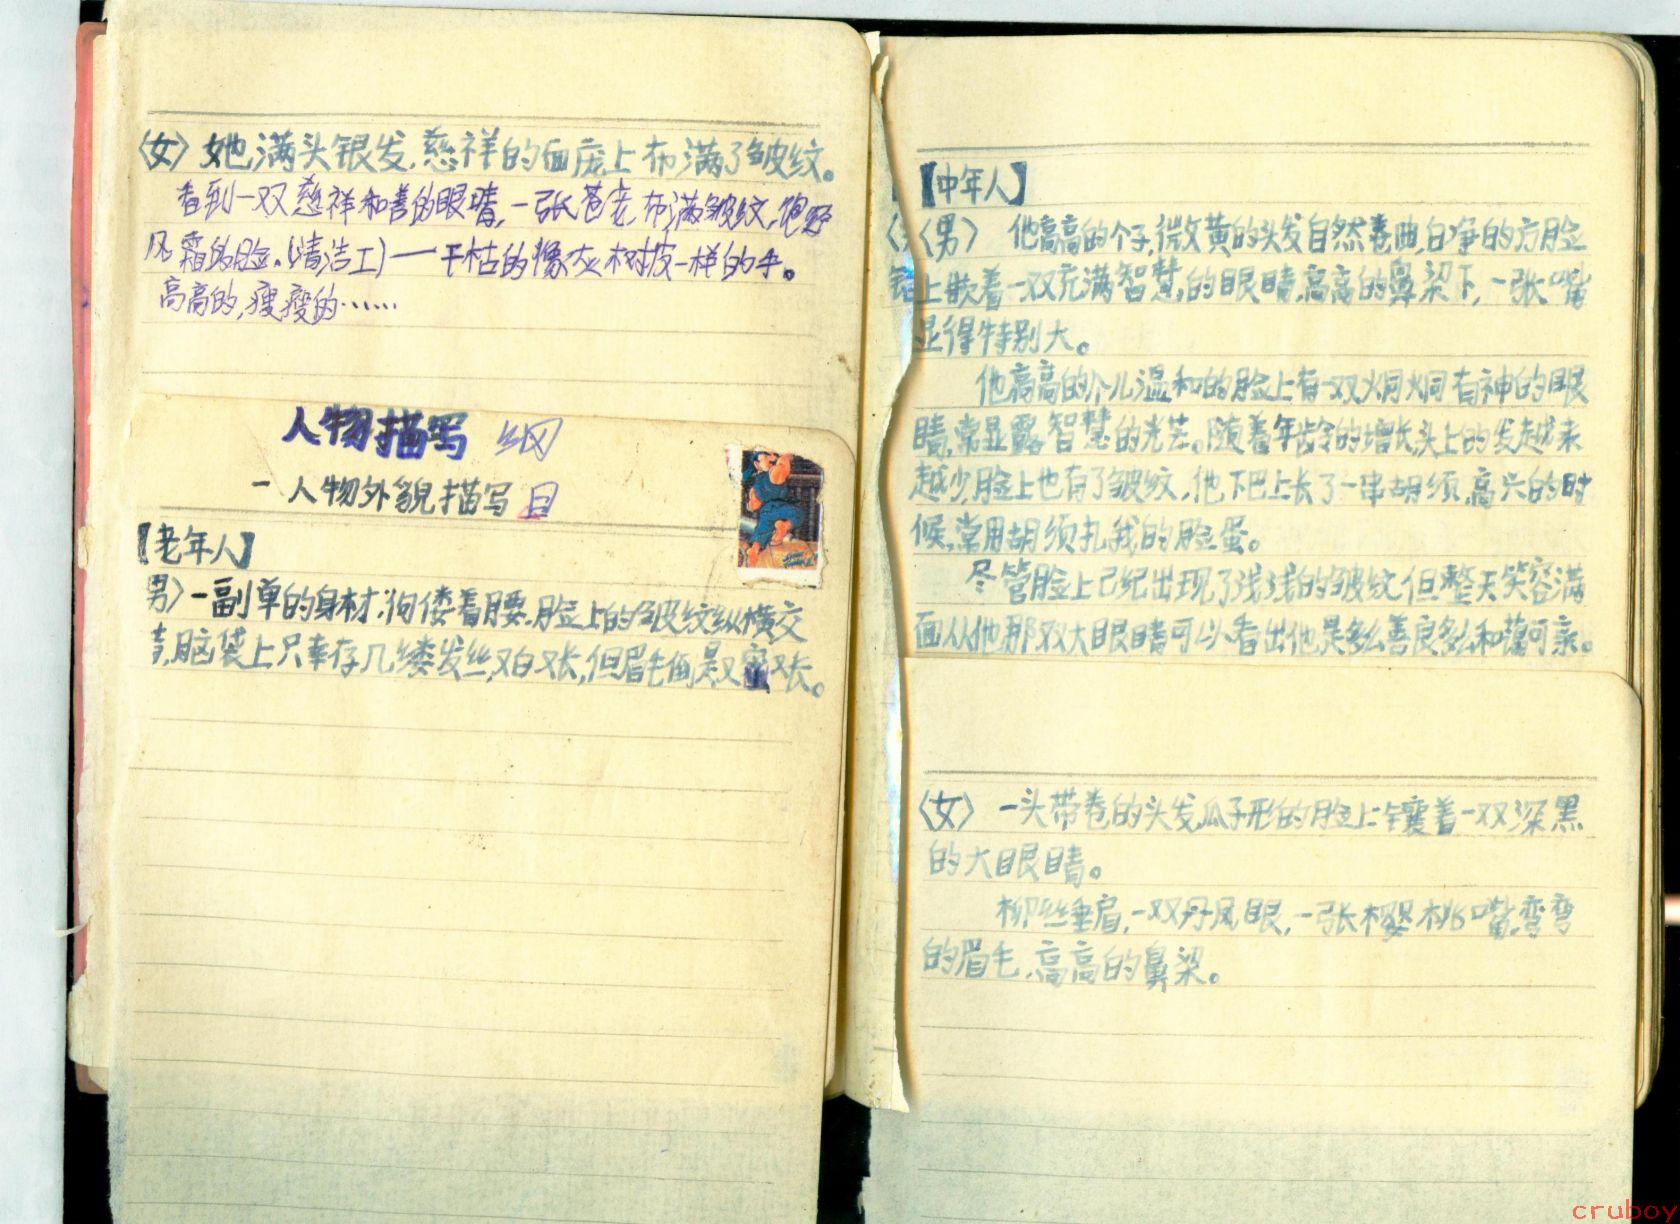 〈女〉她满头银发,慈祥的面庞上布满了皱纹。
看到一双慈祥和善的眼睛,一张苍老,布满皱纹,饱经
风霜的脸。(清洁工)一一干枯的像灰树皮一样的手。
高高的,瘦瘦的……
人物描写 纲
一 人物外貌描写 目
【老年人】
男〉一副单的身材,佝偻着腰,脸上的皱纹纵横交
脑袋上只幸存几缕发丝,又白又长,但眉毛倒是又密又长。
【中年人】
〈男〉 他高高的个子,微黄的头发自然卷曲,白净的方脸
上嵌着一双充满智慧的眼睛,高高的鼻梁下,一张嘴
显得特别大。
他高高的个儿温和的脸上有一双炯炯有神的眼
睛,常显露智慧的光芒。随着年龄的增长,头上的发越来
越少,脸上也有了皱纹,他下巴上长了一串胡须,高兴的时
候,常用胡须扎我的脸蛋。
尽管脸上已纪出现了浅浅的皱纹,但整天笑容满
面从他那双大眼睛可以看出他是多么善良多么和蔼可亲。
〈女〉 一头带卷的头发,瓜子形的脸上镶着一双深黑
的大眼睛。
柳丝垂肩,一双丹凤眼,一张樱桃嘴,弯弯
的眉毛,高高的鼻梁。
cruboy